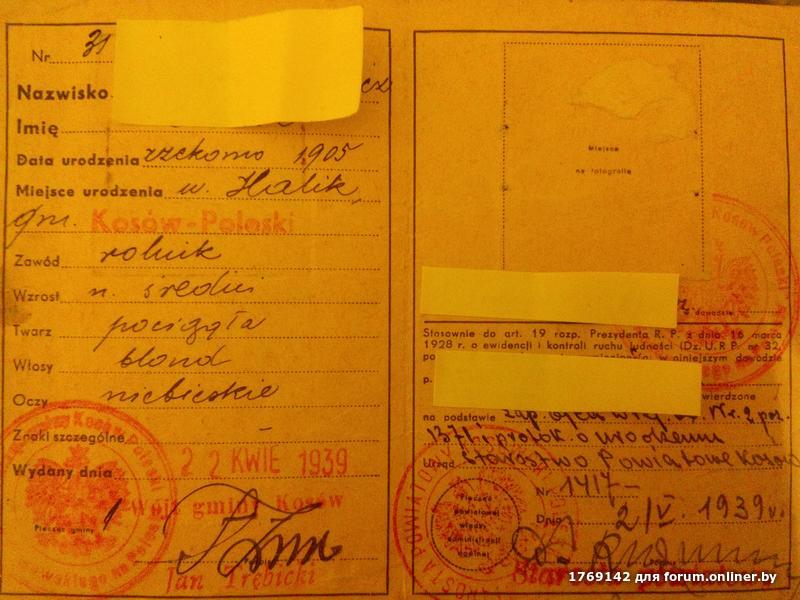 Nr. 31
Nazwisko
cz
Imię
Data urodzenia rzekomo 1905
Miejsce urodzenia w. Halik
gm. Kosów-Poleski
Zawód rolnik
Wzrost n. średni
Twarz pociągła
Włosy blond
Oczy niebieskie
Znaki szczególne —
Wydany dnia 22 KWIE 1939
Wójt gminy Kosów
Pieczęć gminy
Jan Trębicki
Miejsce
na fotografię
dowodzie
Stosownie do art. 19 rozp. Prezydenta R. P. z dnia 16 marca
1928 r. o ewidencji i kontroli ruchu ludności (Dz. U. R. P. nr 32,
po niniejszym dowodzie
p.
na podstawie zap. Nr. 2 poz.
1371 i protok. o urodzeniu
Urząd Starostwo Powiatowe
Nr 1417-
Pieczęć
powiatowej
władzy
administracji
ogólnej
Dnia 2/V. 1939 r.
1769142 для forum.onliner.by